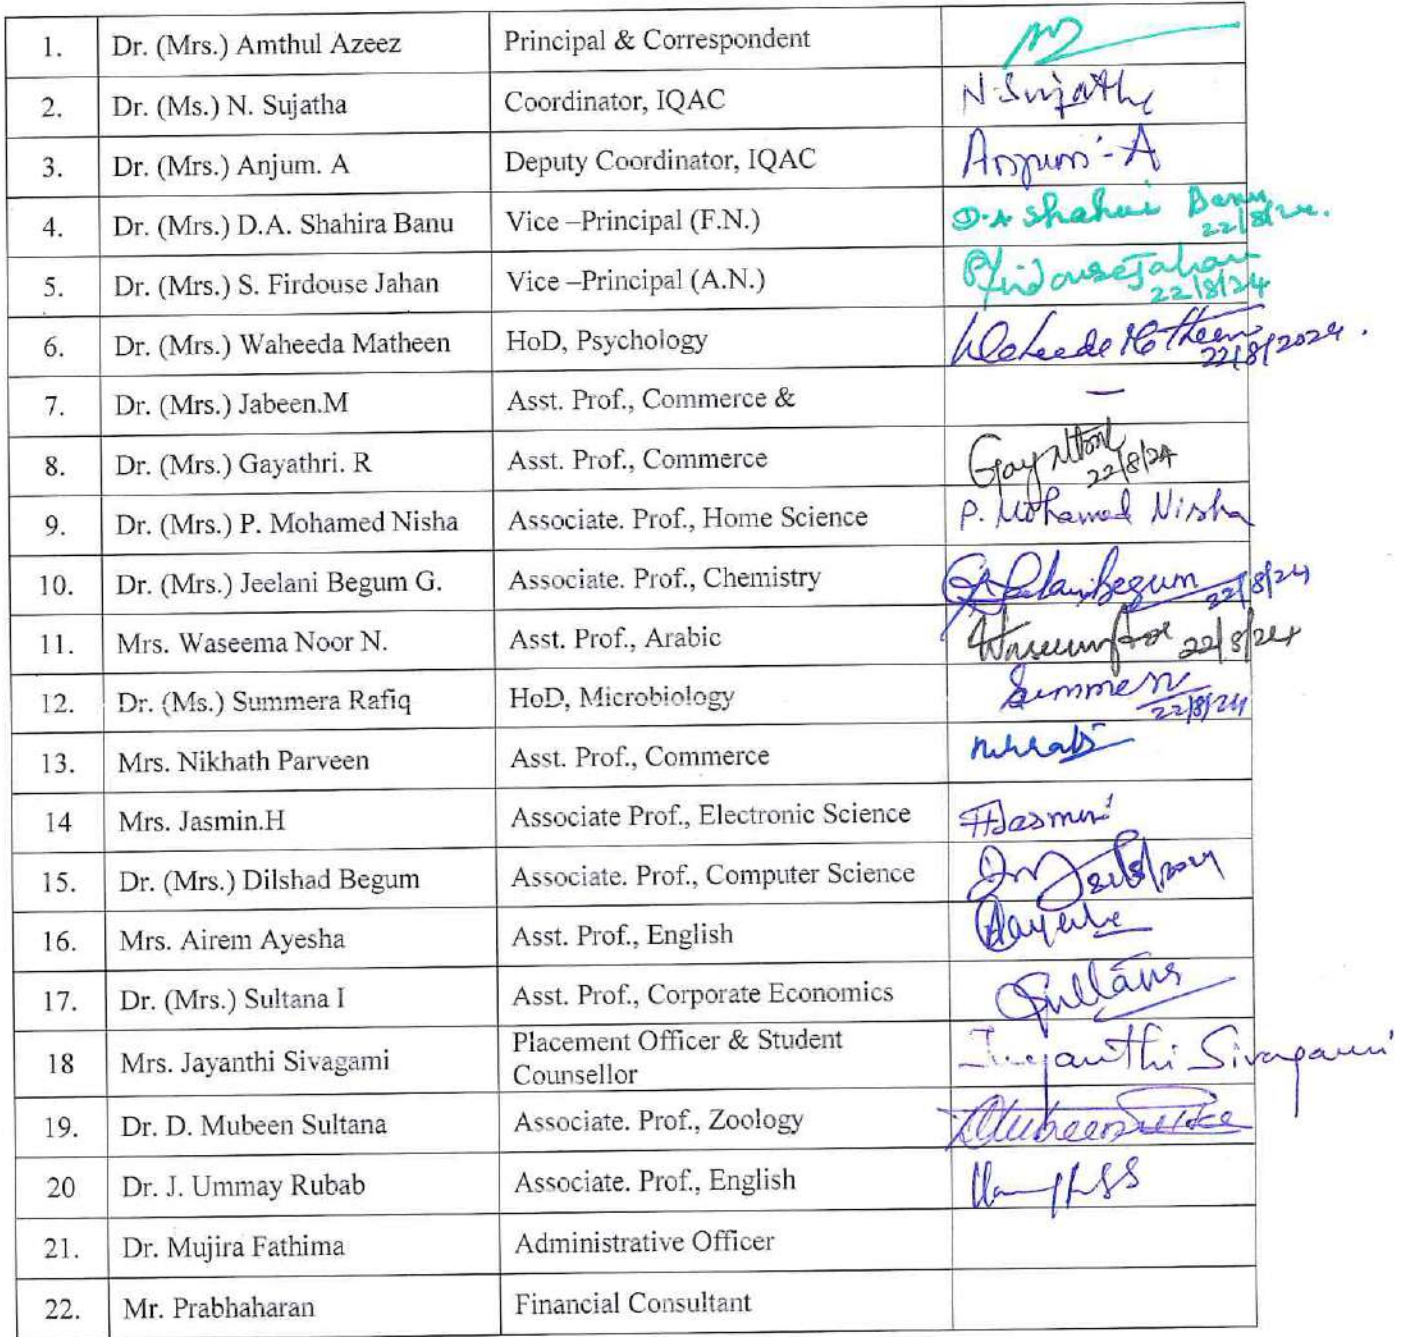 1. Dr. (Mrs.) Amthul Azeez Principal & Correspondent
2. Dr. (Ms.) N. Sujatha Coordinator, IQAC N. Sujatha
3. Dr. (Mrs.) Anjum. A Deputy Coordinator, IQAC Anjum. A
4. Dr. (Mrs.) D.A. Shahira Banu Vice –Principal (F.N.) D.A Shahira Banu
22/8/24.
5. Dr. (Mrs.) S. Firdouse Jahan Vice –Principal (A.N.) Firdouse Jahan
22/8/24
6. Dr. (Mrs.) Waheeda Matheen HoD, Psychology Waheeda Matheen
22/8/2024.
7. Dr. (Mrs.) Jabeen.M Asst. Prof., Commerce & –
8. Dr. (Mrs.) Gayathri. R Asst. Prof., Commerce Gayathri
22/8/24
9. Dr. (Mrs.) P. Mohamed Nisha Associate. Prof., Home Science P. Mohamed Nisha
10. Dr. (Mrs.) Jeelani Begum G. Associate. Prof., Chemistry Begum 22/8/24
11. Mrs. Waseema Noor N. Asst. Prof., Arabic 22/8/24
12. Dr. (Ms.) Summera Rafiq HoD, Microbiology Summera
22/8/24
13. Mrs. Nikhath Parveen Asst. Prof., Commerce
14 Mrs. Jasmin.H Associate Prof., Electronic Science H Jasmin
15. Dr. (Mrs.) Dilshad Begum Associate. Prof., Computer Science
16. Mrs. Airem Ayesha Asst. Prof., English Aayesha
17. Dr. (Mrs.) Sultana I Asst. Prof., Corporate Economics Sultana
18 Mrs. Jayanthi Sivagami Placement Officer & Student Jayanthi Sivagami
Counsellor
19. Dr. D. Mubeen Sultana Associate. Prof., Zoology
20 Dr. J. Ummay Rubab Associate. Prof., English
21. Dr. Mujira Fathima Administrative Officer
22. Mr. Prabhaharan Financial Consultant